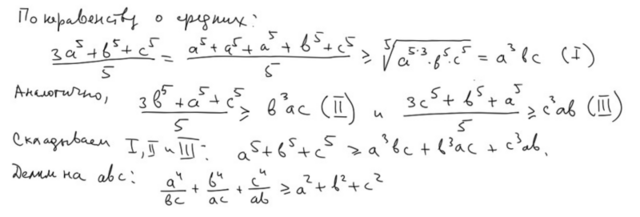 По неравенству о средних:
(3a⁵ + b⁵ + c⁵)/5 = (a⁵ + a⁵ + a⁵ + b⁵ + c⁵)/5 ≥ ⁵√(a⁵·³·b⁵·c⁵) = a³bc (I)
Аналогично, (3b⁵ + a⁵ + c⁵)/5 ≥ b³ac (II) и (3c⁵ + b⁵ + a⁵)/5 ≥ c³ab (III)
Складываем I, II и III: a⁵ + b⁵ + c⁵ ≥ a³bc + b³ac + c³ab.
Делим на abc: a⁴/bc + b⁴/ac + c⁴/ab ≥ a² + b² + c²